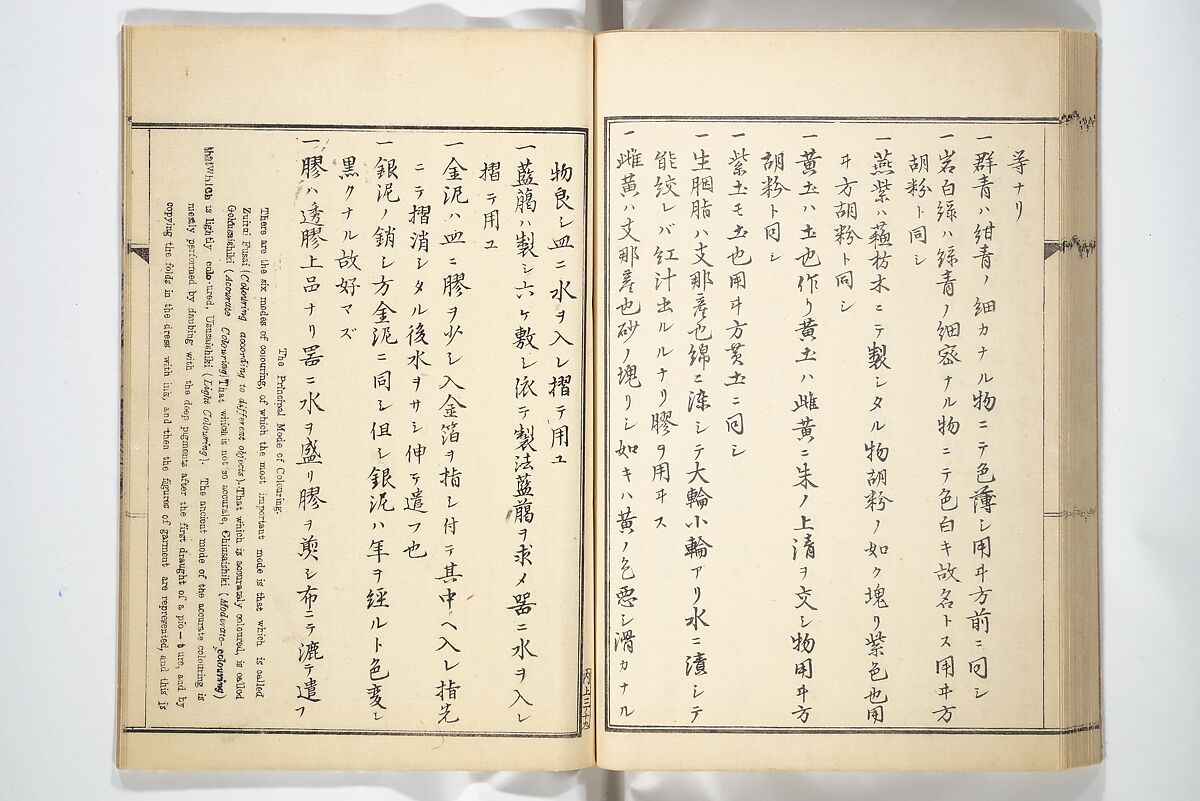 等ナリ
一群青ハ紺青ノ細カナル物ニテ色薄シ用ヰ方前ニ同シ
一岩白緑ハ緑青ノ細密ナル物ニテ色白キ故名トス用ヰ方
胡粉ト同シ
一燕紫ハ蘓枋木ニテ製シタル物胡粉ノ如ク塊リ紫色也用
ヰ方胡粉ト同シ
一黄土ハ土也作リ黄土ハ雌黄ニ朱ノ上清ヲ交シ物用ヰ方
胡粉ト同シ
一紫土モ土也用ヰ方黄土ニ同シ
一生胭脂ハ支那産也綿ニ涑シテ大輪小輪アリ水ニ漬シテ
能絞レバ紅汁出ルルナリ膠ヲ用ヰス
一雌黄ハ支那産也砂ノ塊リシ如キハ黄ノ色悪シ滑カナル
物良シ皿ニ水ヲ入レ摺テ用ユ
一藍蔿ハ製シ六ケ敷シ依テ製法藍蔿ヲ求メ器ニ水ヲ入レ
摺テ用ユ
一金泥ハ皿ニ膠ヲ少シ入金箔ヲ指シ付テ其中ヘ入レ指先
ニテ摺消シタル後水ヲサシ伸テ遣フ也
一銀泥ノ銷シ方金泥ニ同シ但シ銀泥ハ年ヲ經ルト色変シ
黒クナル故好マズ
一膠ハ透膠上品ナリ器ニ水ヲ盛リ膠ヲ煎シ布ニテ漉テ遣フ
The Principal Mode of Colouring.
There are the six modes of colouring, of which the most important mode is that which is called
Zuirui Fusai (Colouring according to different objects). That which is accurately coloured, is called
Gokusaishiki (Accurate Colouring) That which is not so accurate, Chiusaishiki (Moderate-colouring)
that which is lightly coloured, Ususaishiki (Light Colouring). The ancient mode of the accurate colouring is
mostly performed by daubing with the deep pigments after the first draught of a pic-ture, and by
copying the folds in the dress with ink, and then the figures of garment are represented, and this is
内上三十九